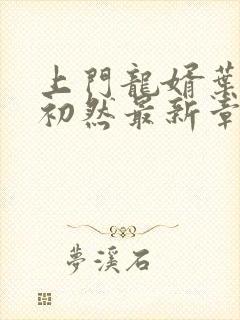 上門龍婿葉
初然最新章
夢溪石